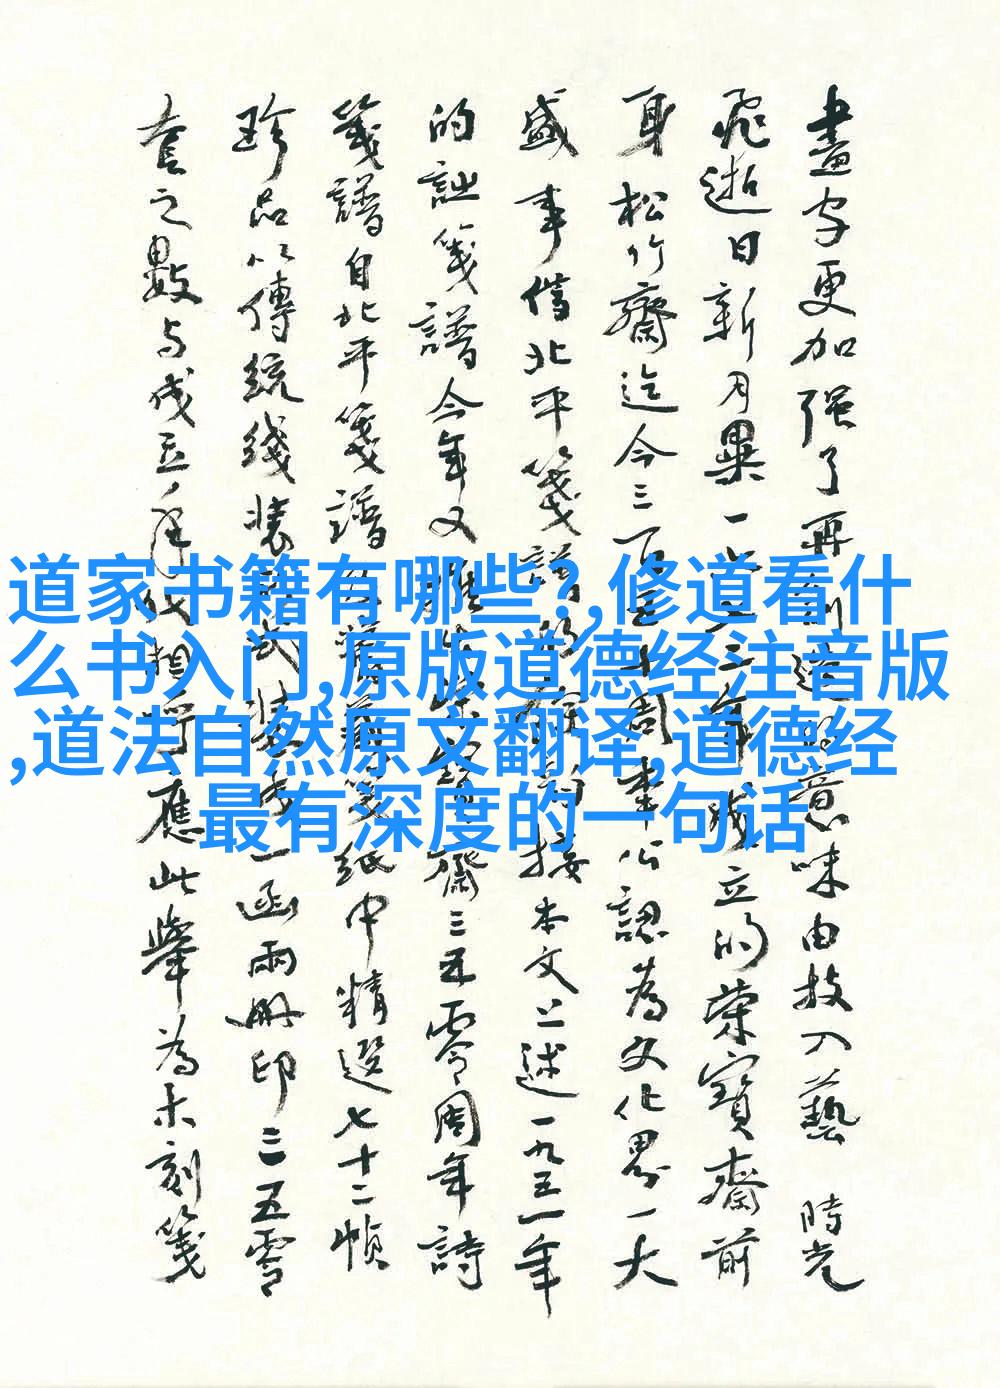 畫字更加强了再創造的意味由技入藝 時光
飛逝日新月異一六七二年成立的榮寶齋前
身松竹齋迄今三百五十周年公認為文化界一大
盛事借北平箋譜的接本文上述一九五一年
的箋譜今年又齋三五零周年詩
箋譜自北平箋譜箋紙中精選七十二幀
珍品以傳統綫裝一函兩冊印三五零
套之數与成立年代相符應此舉為木刻箋
道家书籍有哪些?,修道看什
么书入门,原版道德经注音版
,道法自然原文翻译,道德经
最有深度的一句话